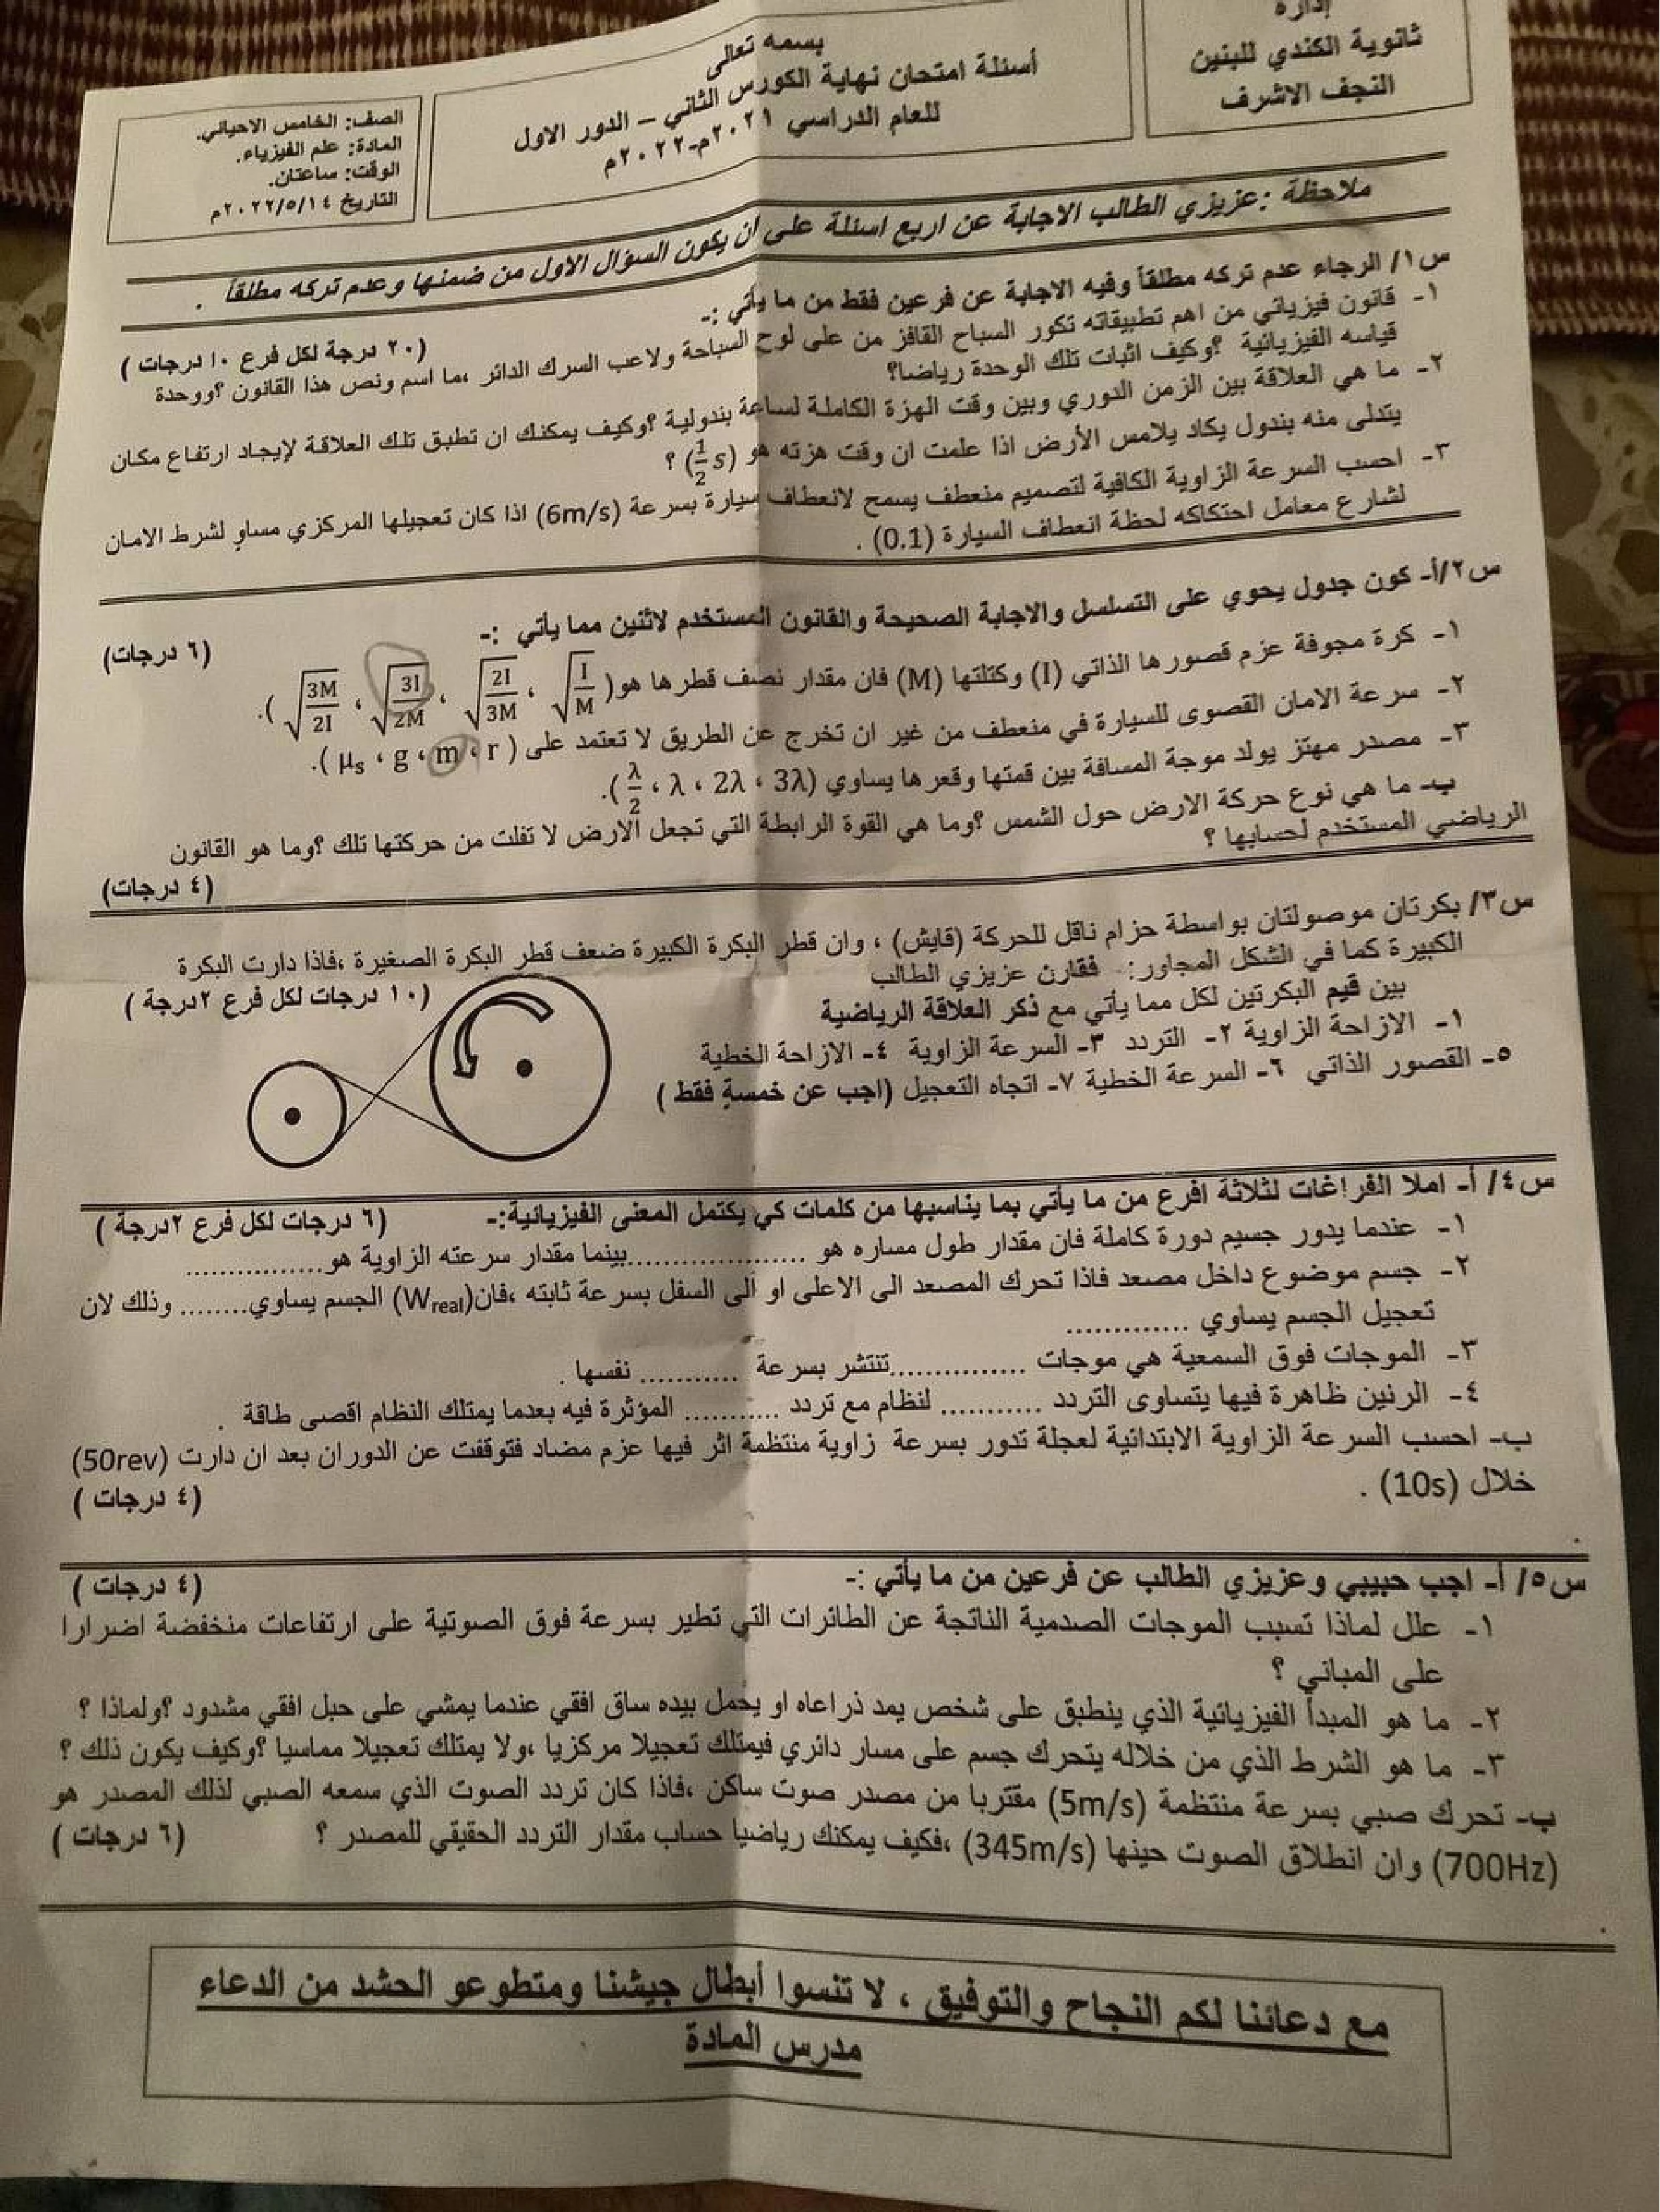 إدارة
ثانوية الكندي للبنين
النجف الاشرف
بسمه تعالى
أسئلة امتحان نهاية الكورس الثاني – الدور الاول
للعام الدراسي ٢٠٢١م-٢٠٢٢م
الصف: الخامس الاحيائي.
المادة: علم الفيزياء.
الوقت: ساعتان.
التاريخ ٢٠٢٢/٥/١٤م
ملاحظة :عزيزي الطالب الاجابة عن اربع اسئلة على ان يكون السؤال الاول من ضمنها وعدم تركه مطلقا .
س١/ الرجاء عدم تركه مطلقاً وفيه الاجابة عن فرعين فقط من ما يأتي :-
(٢٠ درجة لكل فرع ١٠ درجات )
١- قانون فيزيائي من اهم تطبيقاته تكور السباح القافز من على لوح السباحة ولاعب السرك الدائر ،ما اسم ونص هذا القانون ؟ووحدة
قياسه الفيزيائية ؟وكيف اثبات تلك الوحدة رياضا؟
٢- ما هي العلاقة بين الزمن الدوري وبين وقت الهزة الكاملة لساعة بندولية ؟وكيف يمكنك ان تطبق تلك العلاقة لإيجاد ارتفاع مكان
يتدلى منه بندول يكاد يلامس الأرض اذا علمت ان وقت هزته هو (1/2 s) ؟
٣- احسب السرعة الزاوية الكافية لتصميم منعطف يسمح لانعطاف سيارة بسرعة (6m/s) اذا كان تعجيلها المركزي مساوٍ لشرط الامان
لشارع معامل احتكاكه لحظة انعطاف السيارة (0.1) .
س٢/أ- كون جدول يحوي على التسلسل والاجابة الصحيحة والقانون المستخدم لاثنين مما يأتي :-
(٦ درجات)
١- كرة مجوفة عزم قصورها الذاتي (I) وكتلتها (M) فان مقدار نصف قطرها هو( √(I/M) ، √(2I/3M) ، √(3I/2M) ، √(3M/2I) ).
٢- سرعة الامان القصوى للسيارة في منعطف من غير ان تخرج عن الطريق لا تعتمد على ( r ، m ، g ، μs ).
٣- مصدر مهتز يولد موجة المسافة بين قمتها وقعرها يساوي (3λ ، 2λ ، λ ، λ/2).
ب- ما هي نوع حركة الارض حول الشمس ؟وما هي القوة الرابطة التي تجعل الارض لا تفلت من حركتها تلك ؟وما هو القانون
الرياضي المستخدم لحسابها ؟
(٤ درجات)
س٣/ بكرتان موصولتان بواسطة حزام ناقل للحركة (قايش) ، وان قطر البكرة الكبيرة ضعف قطر البكرة الصغيرة ،فاذا دارت البكرة
الكبيرة كما في الشكل المجاور: فقارن عزيزي الطالب
(١٠ درجات لكل فرع ٢درجة )
بين قيم البكرتين لكل مما يأتي مع ذكر العلاقة الرياضية
١- الازاحة الزاوية ٢- التردد ٣- السرعة الزاوية ٤- الازاحة الخطية
٥- القصور الذاتي ٦- السرعة الخطية ٧- اتجاه التعجيل (اجب عن خمسةٍ فقط )
س٤/ أ- املا الفراغات لثلاثة افرع من ما يأتي بما يناسبها من كلمات كي يكتمل المعنى الفيزيائية:-
(٦ درجات لكل فرع ٢درجة )
١- عندما يدور جسيم دورة كاملة فان مقدار طول مساره هو .....................بينما مقدار سرعته الزاوية هو................
٢- جسم موضوع داخل مصعد فاذا تحرك المصعد الى الاعلى او الى السفل بسرعة ثابته ،فان(Wreal) الجسم يساوي........ وذلك لان
تعجيل الجسم يساوي .............
٣- الموجات فوق السمعية هي موجات ...............تنتشر بسرعة ........... نفسها .
٤- الرنين ظاهرة فيها يتساوى التردد ........... لنظام مع تردد ........... المؤثرة فيه بعدما يمتلك النظام اقصى طاقة .
ب- احسب السرعة الزاوية الابتدائية لعجلة تدور بسرعة زاوية منتظمة اثر فيها عزم مضاد فتوقفت عن الدوران بعد ان دارت (50rev)
خلال (10s) .
(٤ درجات )
س٥/ أ- اجب حبيبي وعزيزي الطالب عن فرعين من ما يأتي :-
(٤ درجات )
١- علل لماذا تسبب الموجات الصدمية الناتجة عن الطائرات التي تطير بسرعة فوق الصوتية على ارتفاعات منخفضة اضرارا
على المباني ؟
٢- ما هو المبدأ الفيزيائية الذي ينطبق على شخص يمد ذراعاه او يحمل بيده ساق افقي عندما يمشي على حبل افقي مشدود ؟ولماذا ؟
٣- ما هو الشرط الذي من خلاله يتحرك جسم على مسار دائري فيمتلك تعجيلا مركزيا ،ولا يمتلك تعجيلا مماسيا ؟وكيف يكون ذلك ؟
ب- تحرك صبي بسرعة منتظمة (5m/s) مقتربا من مصدر صوت ساكن ،فاذا كان تردد الصوت الذي سمعه الصبي لذلك المصدر هو
(700Hz) وان انطلاق الصوت حينها (345m/s) ،فكيف يمكنك رياضيا حساب مقدار التردد الحقيقي للمصدر ؟
(٦ درجات )
مع دعائنا لكم النجاح والتوفيق ، لا تنسوا أبطال جيشنا ومتطوعو الحشد من الدعاء
مدرس المادة